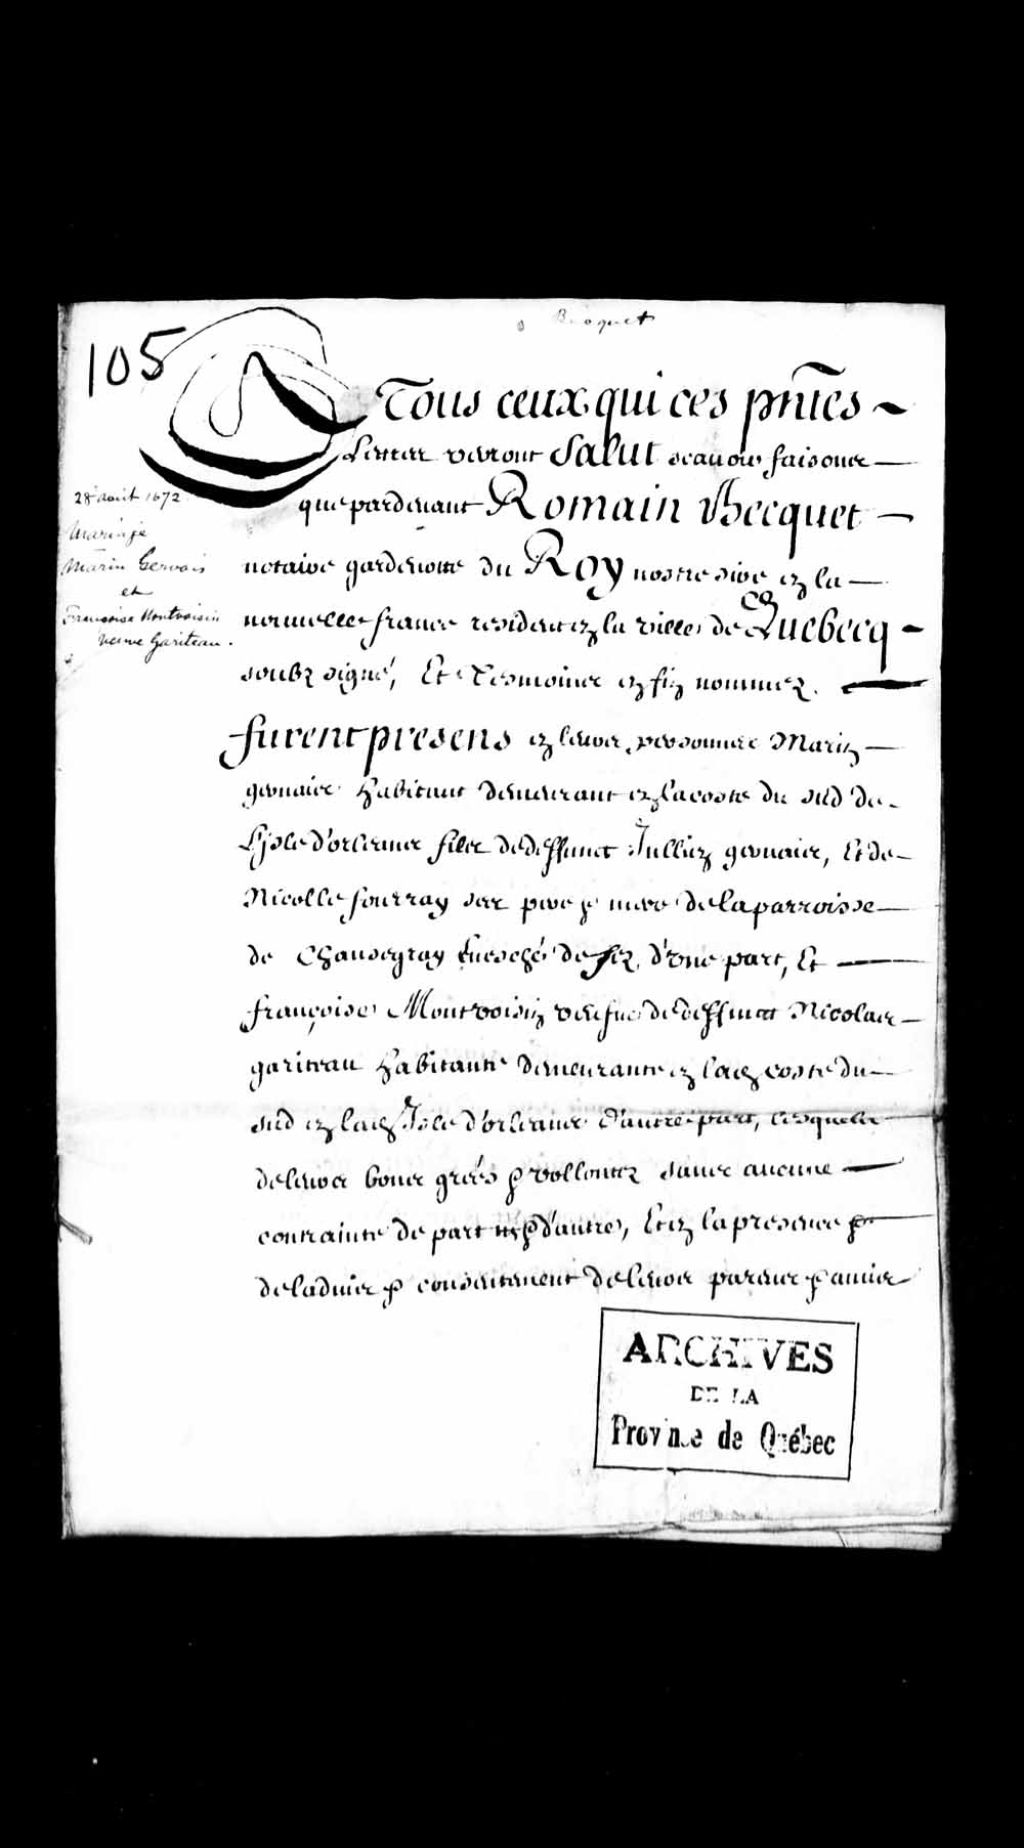 Becquet
105
A Tous ceux qui ces pntes
Lettres verront Salut scavoir faisons
que pardevant Romain Becquet
28 août 1672
notaire gardenotte du Roy nostre sire en la
Mariage
Marin Gervais
et
Francoise Montvoisin
veuve Gariteau.
nouvelle france resident en la ville de Quebecq
soubz signé, Et Tesmoins en fin nommez.
furent presens en leurs personnes Marin
gervais habitant demeurant en la coste du sud de
L'isle d'orleans filz de deffunct Jullien gervais, Et de
Nicolle fourray ses pere & mere de la parroisse
de Evesché de d'une part, Et
françoise Montvoisin veufve de deffunct Nicolas
gariteau habitante demeurante en lad coste du
sud en lad Isle d'orleans d'autre part, lesquels
de leurs bons grées & vollontez sans aucune
contrainte de part ny d'autre, Et en la presence &
de ladvis & consentement de leurs parens & amis
ARCHIVES
DE LA
Province de Québec